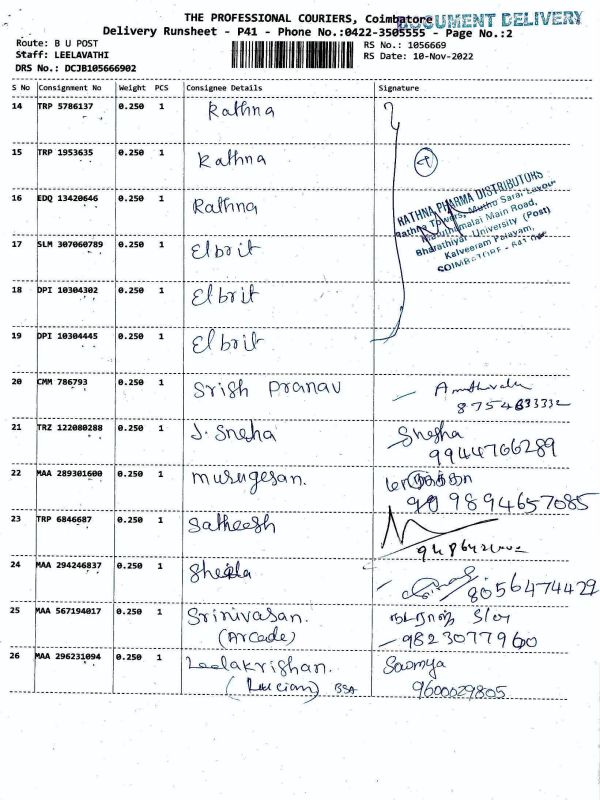 THE PROFESSIONAL COURIERS, Coimbatore
DOCUMENT DELIVERY
Delivery Runsheet - P41 - Phone No.:0422-3505555 - Page No.:2
Route: B U POST
RS No.: 1056669
Staff: LEELAVATHI
RS Date: 10-Nov-2022
DRS No.: DCJB105666902
S No Consignment No Weight PCS Consignee Details Signature
14 TRP 5786137 0.250 1 Rathna
15 TRP 1953635 0.250 1 Rathna
16 EDQ 13420646 0.250 1 Rathna
RATHNA PHARMA DISTRIBUTORS
Rathna Towers, Muthu Sarai Layout
Maruthamalai Main Road,
Bharathiyar University (Post)
Kalveeram Palayam,
COIMBATORE - 641
17 SLM 307060789 0.250 1 Elbrit
18 DPI 10304302 0.250 1 Elbrit
19 DPI 10304445 0.250 1 Elbrit
20 CMM 786793 0.250 1 Srish Pranav
21 TRZ 122080288 0.250 1 J. Sneha Sneha
9944766289
22 MAA 289301600 0.250 1 murugesan.
9894657085
23 TRP 6846687 0.250 1 Satheesh
24 MAA 294246837 0.250 1 Sheela
8056474429
25 MAA 567194017 0.250 1 Srinivasan. நடராஜ் S/o
(Arcade) 9823077960
26 MAA 296231094 0.250 1 Leelakrishan. Sowmya
(Lucian) BSA 9600029805